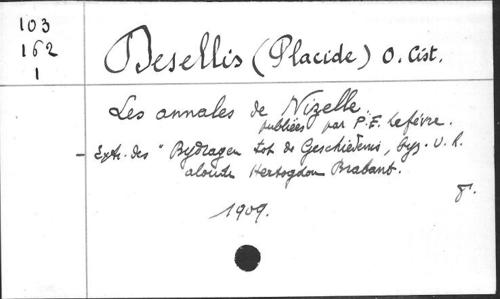 103
162
1
Desellis (Placide) O. Cist.
Les annales de Nizelle.
publiées par P. E. Lefèvre.
- Extr. des "Bydragen tot de Geschiedenis, byz. v. h.
aloude Hertogdom Brabant.
1909.